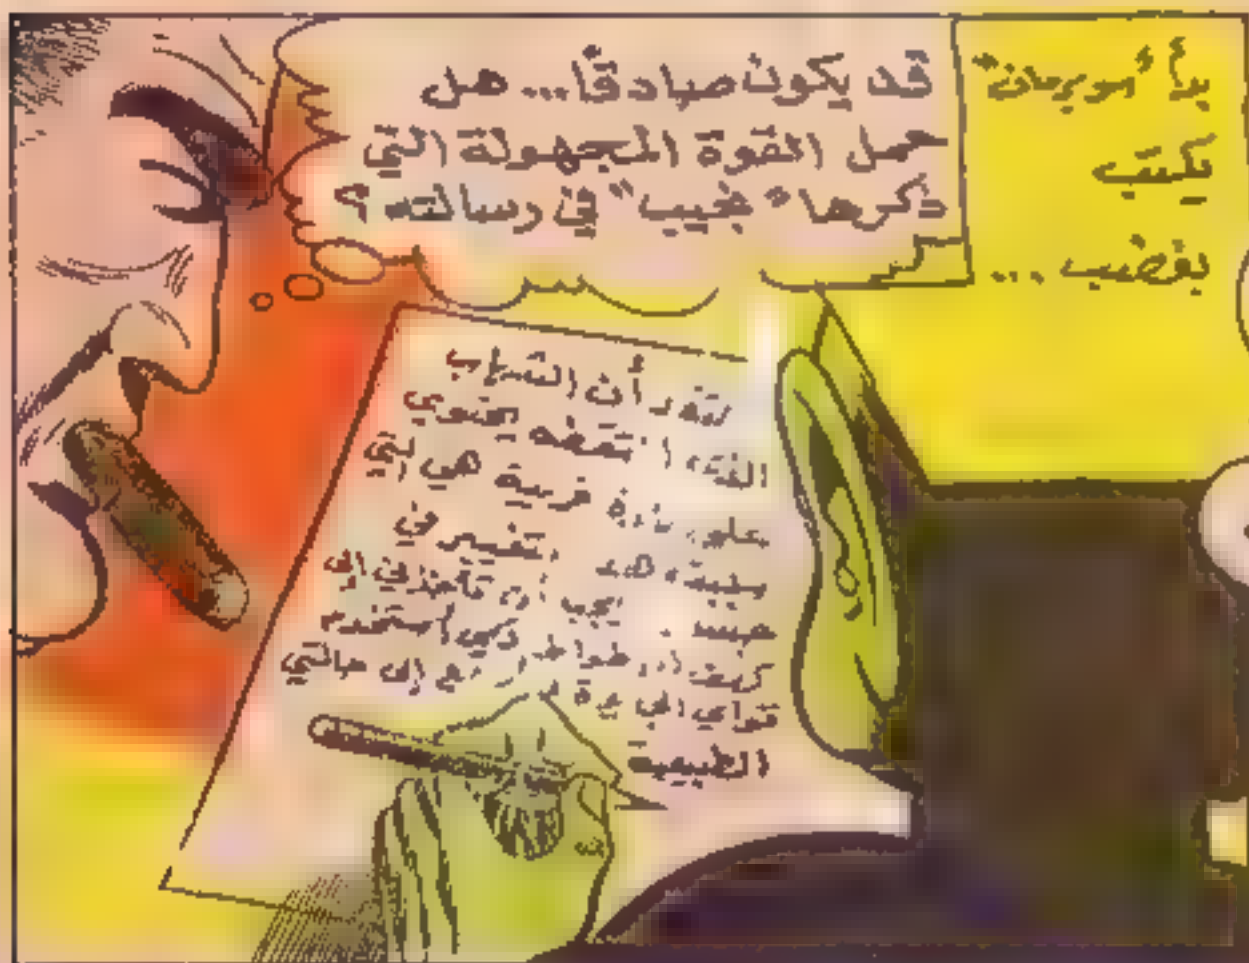 بدأ "سوبرمان"
يكتب
بغضب ...
قد يكون صادقًا... هل
حمل القوة المجهولة التي
ذكرها "نجيب" في رسالته ؟
لقد أن الشهاب
الذي التقطه يحتوي
على مادة غريبة هي التي
سببت هذا التغيير في
جسد . يجب أن تأخذني إلى
كي استخدم
قواي إلى حالتي
الطبيعية